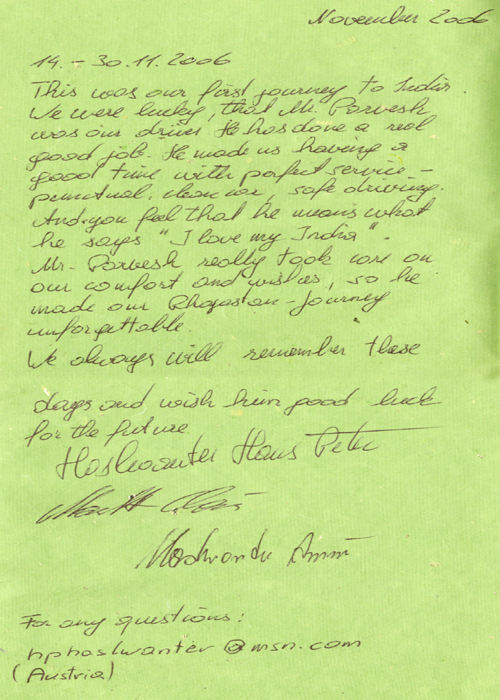 November 2006
14. - 30.11.2006
This was our first journey to India.
We were lucky, that Mr. Parvesh
was our driver. He has done a real
good job. He made us having a
good time with perfect service -
punctual, clean car, safe driving.
And you feel that he means what
he says "I love my India".
Mr. Parvesh really took care on
our comfort and wishes, so he
made our Rhajastan-Journey
unforgettable.
We always will remember these
days and wish him good luck
for the future
Haslwanter Hans Peter
Haslwanter
For any questions:
hphaslwanter@msn.com
(Austria)